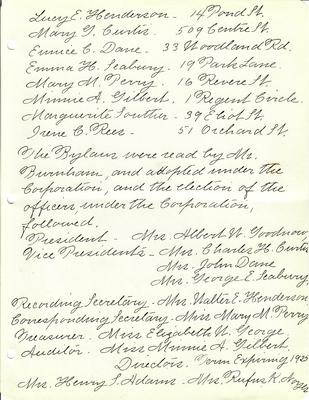 Lucy E. Henderson - 14 Pond St.
Mary G. Curtis. 509 Centre St.
Eunice C. Dane. 33 Woodland Rd.
Emma H. Seabury. 19 Park Lane.
Mary M. Perry. 16 Revere St.
Minnie A. Gilbert. 1 Regent Circle.
Marguerite Souther - 39 Eliot St.
Irene C. Rees - 51 Orchard St.
The Bylaws were read by Mr.
Burnham, and adopted under the
Corporation, and the election of the
officers, under the Corporation,
followed.
President - Mrs. Albert W. Goodnow,
Vice Presidents - Mrs. Charles H. Curtis
Mrs. John Dane
Mrs. George E. Seabury
Recording Secretary - Mrs. Walter E. Henderson
Corresponding Secretary - Miss Mary M. Perry
Treasurer. Miss Elizabeth W. George.
Auditor. Miss Minnie A. Gilbert.
Directors. Term Expiring 1925
Mrs. Henry S. Adams - Mrs. Rufus K. Noyes